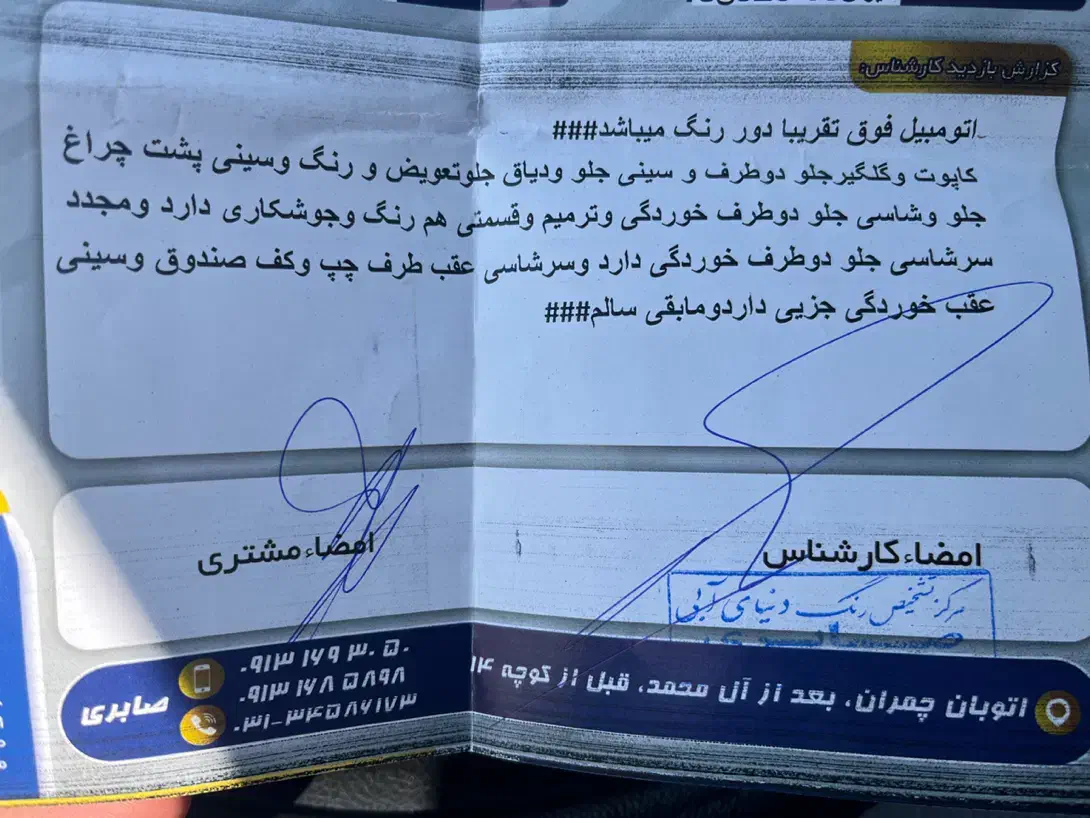 گزارش بازدید کارشناس:
اتومبیل فوق تقریبا دور رنگ میباشد###
کاپوت وگلگیرجلو دوطرف و سینی جلو ودیاق جلوتعویض و رنگ وسینی پشت چراغ
جلو وشاسی جلو دوطرف خوردگی وترمیم وقسمتی هم رنگ وجوشکاری دارد ومجدد
سرشاسی جلو دوطرف خوردگی دارد وسرشاسی عقب طرف چپ وکف صندوق وسینی
عقب خوردگی جزیی داردومابقی سالم###
امضاء کارشناس
امضاء مشتری
مرکز تشخیص رنگ دنیای آبی
اتوبان چمران، بعد از آل محمد، قبل از کوچه ۱۴
۰۹۱۳ ۱۶۹ ۳۰۵۰
۰۹۱۳ ۱۶۸ ۵۸۹۸
۰۳۱-۳۴۵۸۶۱۷۳
صابری